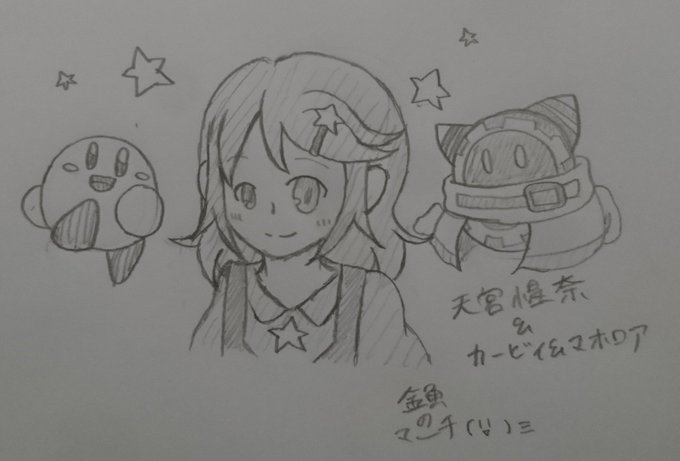 天宮惺奈
&
カービィ&マホロア
金魚
の
マーチ(